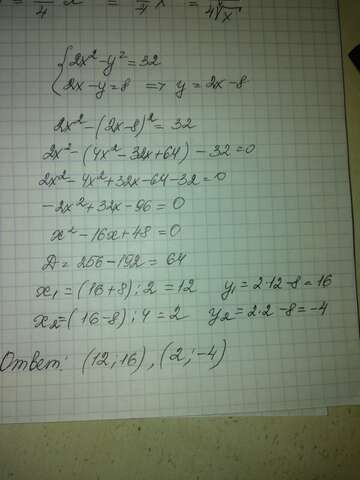 = 4 = 4 x = 4∜x
{2x² - y² = 32
2x - y = 8 => y = 2x - 8
2x² - (2x-8)² = 32
2x² - (4x² - 32x + 64) - 32 = 0
2x² - 4x² + 32x - 64 - 32 = 0
-2x² + 32x - 96 = 0
x² - 16x + 48 = 0
D = 256 - 192 = 64
x₁ = (16+8) : 2 = 12 y₁ = 2·12 - 8 = 16
x₂ = (16-8) : 4 = 2 y₂ = 2·2 - 8 = -4
Ответ: (12, 16), (2; -4)